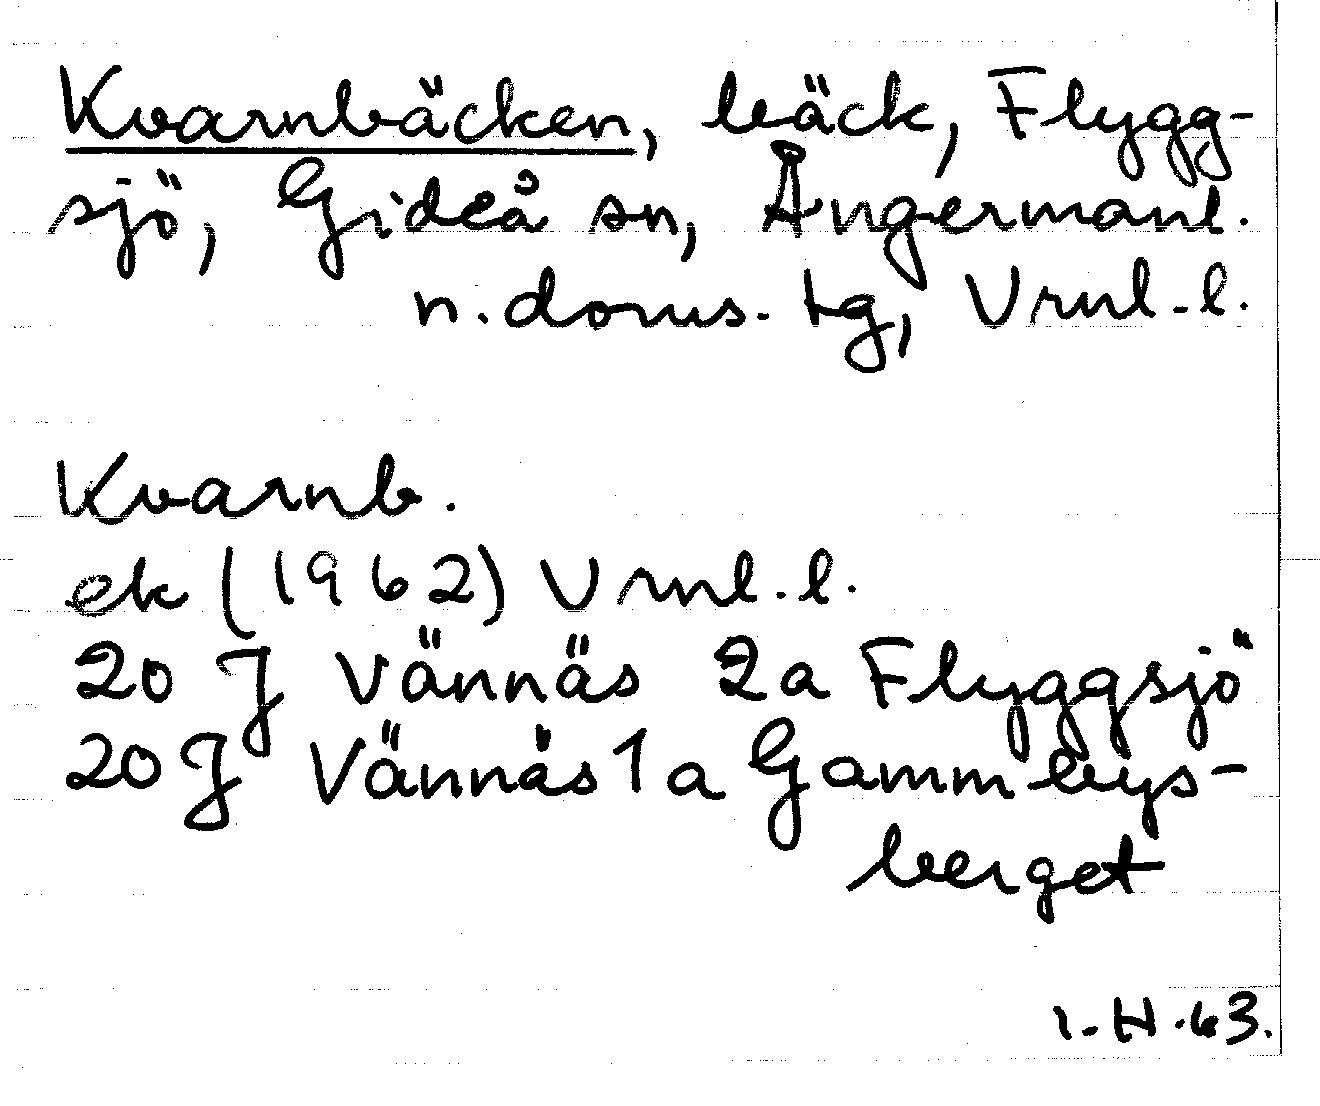 Kvarnbäcken, bäck, Flygg-
sjö, Gideå sn, Ångermanl.
n. doms. tg, Vrnl-l.
Kvarnb.
ek (1962) Vrnl.l.
20 J Vännäs 2a Flyggsjö
20 J Vännäs 1a Gammbys-
berget
1.H.63.